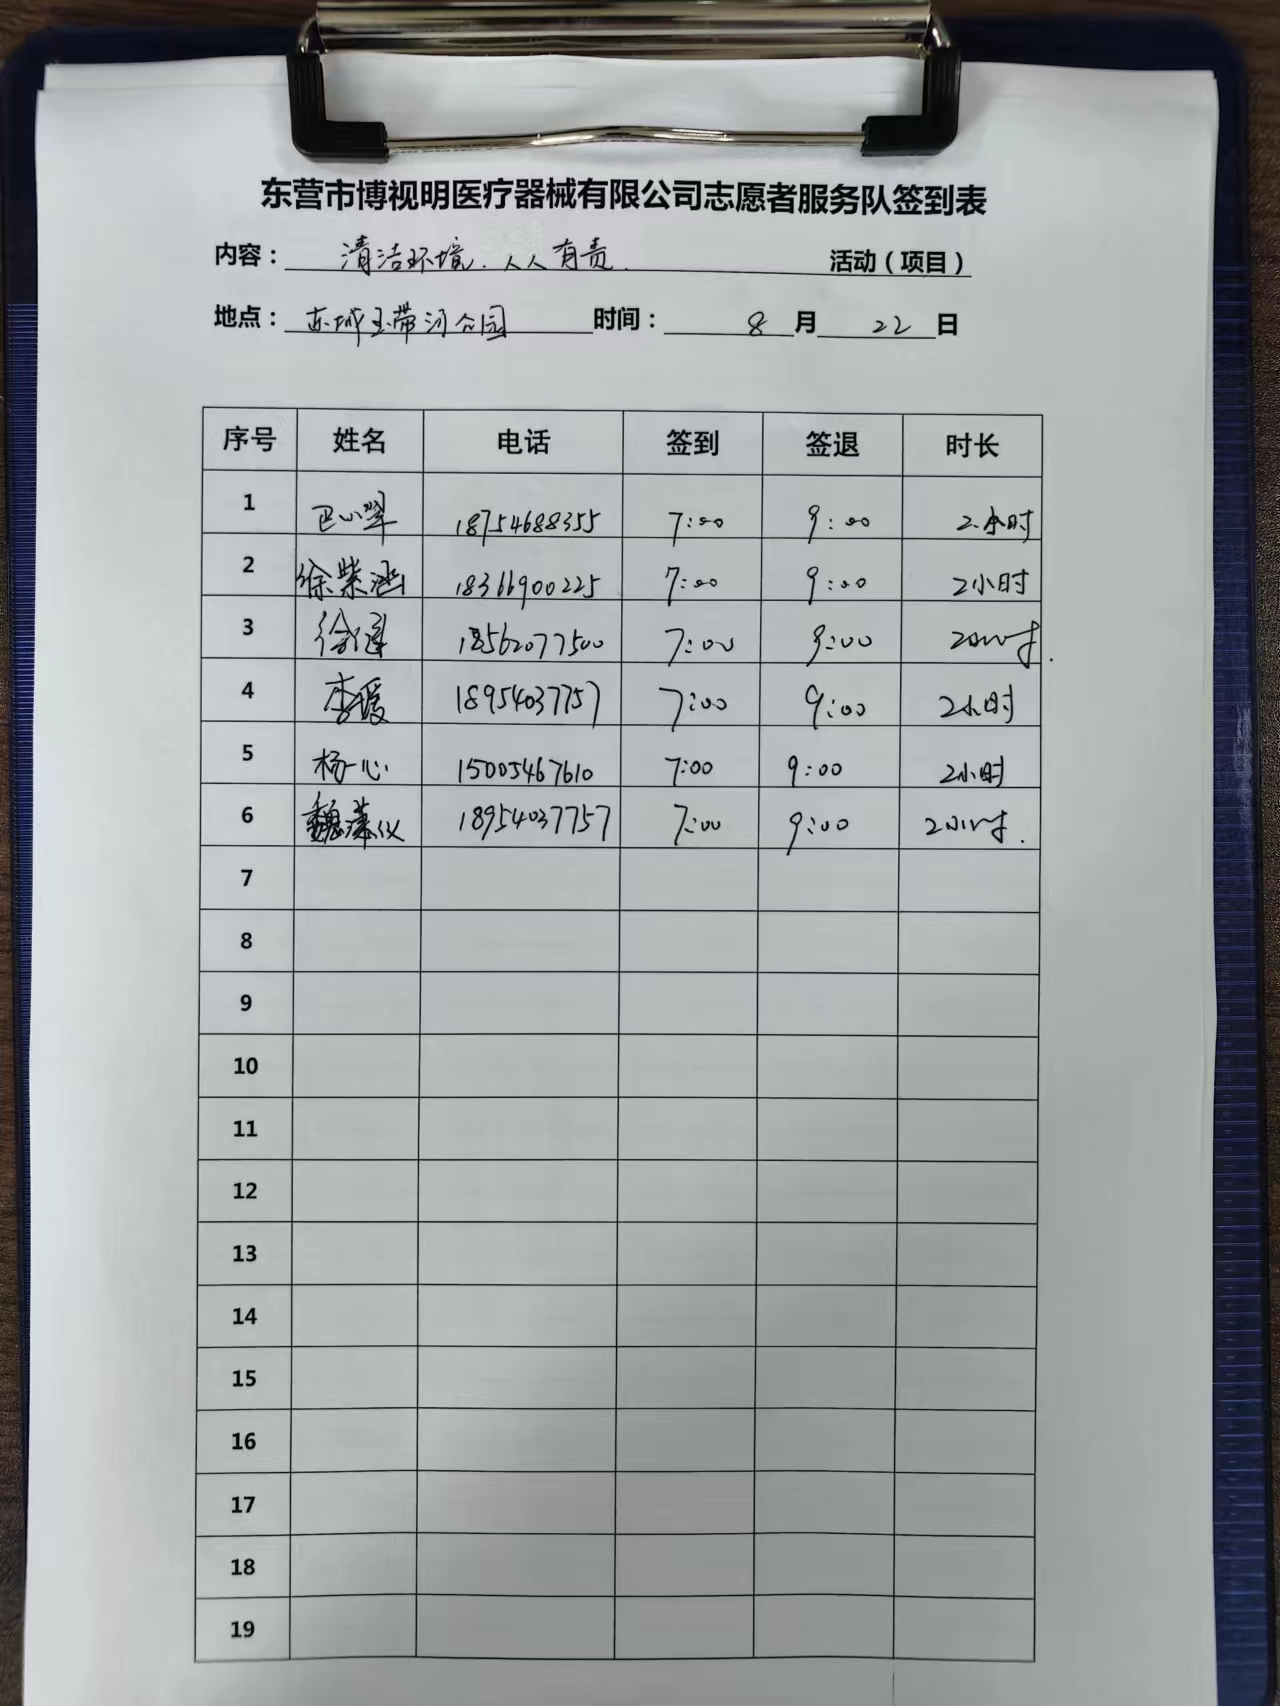 东营市博视明医疗器械有限公司志愿者服务队签到表
内容： 清洁环境.人人有责. 活动（项目）
地点： 东城玉带河公园 时间： 8 月 22 日
序号 姓名 电话 签到 签退 时长
1 18754688355 7:00 9:00 2小时
2 徐紫涵 18366900225 7:00 9:00 2小时
3 18562077500 7:00 9:00 2小时.
4 李媛 18954037757 7:00 9:00 2小时
5 杨一心 15005467610 7:00 9:00 2小时
6 18954037757 7:00 9:00 2小时.
7
8
9
10
11
12
13
14
15
16
17
18
19